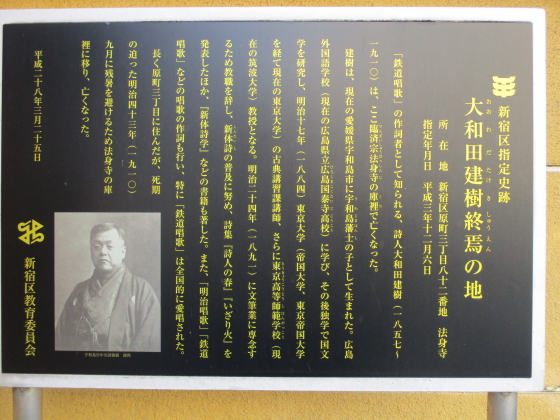 新宿区指定史跡
おおわだたけきしゅうえん
大和田建樹終焉の地
所在地　新宿区原町三丁目八十二番地　法身寺
指定年月日　平成三年十二月六日
「鉄道唱歌」の作詞者として知られる、詩人大和田建樹（一八五七〜
一九一〇）は、ここ臨済宗法身寺の庫裡で亡くなった。
建樹は、現在の愛媛県宇和島市に宇和島藩士の子として生まれた。広島
外国語学校（現在の広島県立広島国泰寺高校）に学び、その後独学で国文
学を研究し、明治十七年（一八八四）東京大学（帝国大学、東京帝国大学
を経て現在の東京大学）の古典講習課講師、さらに東京高等師範学校（現
在の筑波大学）教授となる。明治二十四年（一八九一）に文筆業に専念す
るため教職を辞し、新体詩の普及に努め、詩集『詩人の春』『いざり火』を
発表したほか、『新体詩学』などの書籍も著した。また、「明治唱歌」「鉄道
唱歌」などの唱歌の作詞も行い、特に「鉄道唱歌」は全国的に愛唱された。
長く原町三丁目に住んだが、死期
の迫った明治四十三年（一九一〇）
九月に残暑を避けるため法身寺の庫
裡に移り、亡くなった。
平成二十八年三月二十五日
新宿区教育委員会